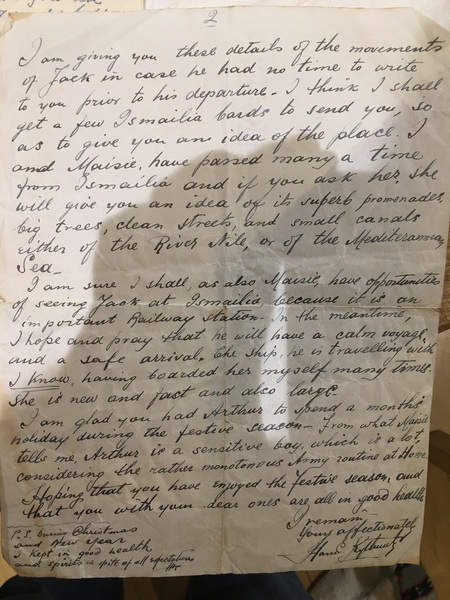 2
I am giving you these details of the movements
of Jack in case he had no time to write
to you prior to his departure. I think I shall
get a few Ismailia cards to send you, so
as to give you an idea of the place. I
and Maisie, have passed many a time
from Ismailia and if you ask her, she
will give you an idea of its superb promenades,
big trees, clean streets, and small canals
either of the River Nile, or of the Mediterranean
Sea -
I am sure I shall, as also Maisie, have opportunities
of seeing Jack at Ismailia because it is an
important Railway station. In the meantime,
I hope and pray that he will have a calm voyage
and a safe arrival. The ship, he is travelling with
I know, having boarded her myself many times.
She is new and fast and also large.
I am glad you had Arthur to spend a months
holiday during the festive season - From what Maisie
tells me, Arthur is a sensitive boy, which is a lot,
considering the rather monotonous Army routine at Home.
Hoping that you have enjoyed the festive season, and
that you with your dear ones are all in good health
I remain
Yours affectionately
P.S. During Christmas
and New Year
I kept in good health
and spirits in spite of all expectations